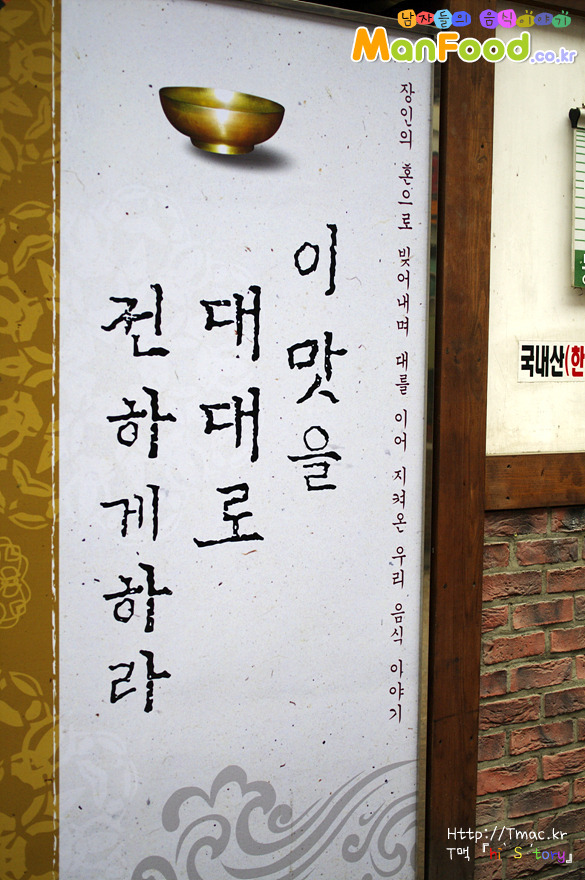 남자들의 음식이야기
ManFood.co.kr
장인의 혼으로 빚어내며 대를 이어 지켜온 우리 음식 이야기
이 맛을
대대로
전하게하라
국내산(한
Http://Tmac.kr
T맥『Hi Story』